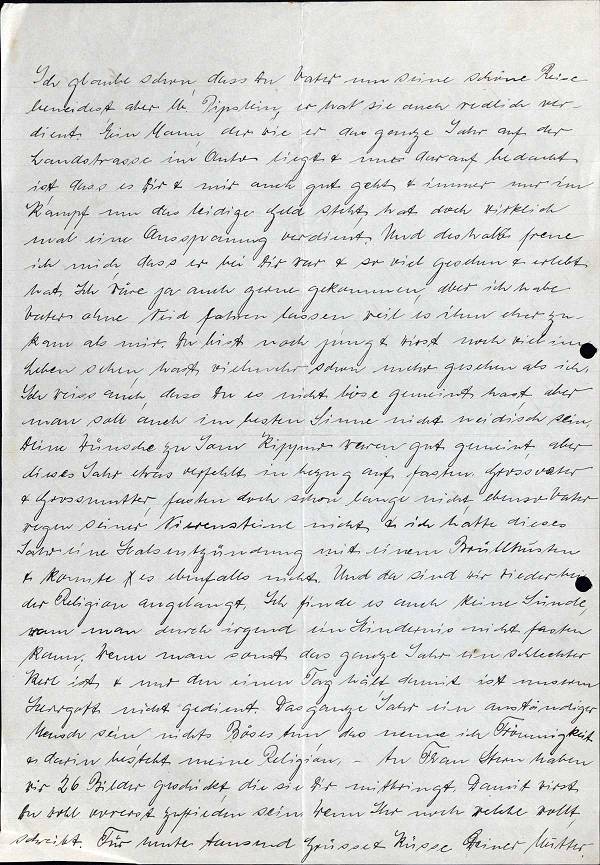 Ich glaube schon dass Du Vater um seine schöne Reise
beneidest aber lb. Pipslein, er hat sie auch redlich ver-
dient. Ein Mann, der wie er das ganze Jahr auf der
Landstrasse im Auto liegt & nur darauf bedacht
ist dass es Dir & mir auch gut geht & immer nur im
Kampf um das leidige Geld steht, hat doch wirklich
mal eine Ausspannung verdient. Und deshalb freue
ich mich, dass er bei Dir war & so viel gesehen & erlebt
hat. Ich wäre ja auch gerne gekommen, aber ich habe
Vater ohne Neid fahren lassen weil es ihm eher zu-
kam als mir. Du bist noch jung & wirst noch viel im
Leben sehen, hast vielmehr schon mehr gesehen als ich.
Ich weiss auch, dass Du es nicht böse gemeint hast, aber
man soll auch im besten Sinne nicht neidisch sein.
Deine Wünsche zu Jom Kippur waren gut gemeint, aber
dieses Jahr etwas verfehlt in bezug auf fasten. Grossvater
& Grossmutter fasten doch schon lange nicht, ebenso Vater
wegen seiner Nierensteine nicht & ich hatte dieses
Jahr eine Halsentzündung mit einem Brüllhusten
& konnte es ebenfalls nicht. Und da sind wir wieder bei
der Religion angelangt. Ich finde es auch keine Sünde,
wenn man durch irgend ein Hindernis nicht fasten
kann. Wenn man sonst das ganze Jahr ein schlechter
Kerl ist & nur den einen Tag hält damit ist unserm
Herrgott nicht gedient. Das ganze Jahr ein anständiger
Mensch sein nichts Böses tun das nenne ich Frömmigkeit
& darin besteht meine Religion. – An Frau Stern haben
wir 26 Bilder geschickt, die sie Dir mitbringt. Damit wirst
Du wohl vorerst zufrieden sein. Wenn Ihr noch welche wollt
schreibt. Für heute tausend Grüsse & Küsse Deiner Mutter.